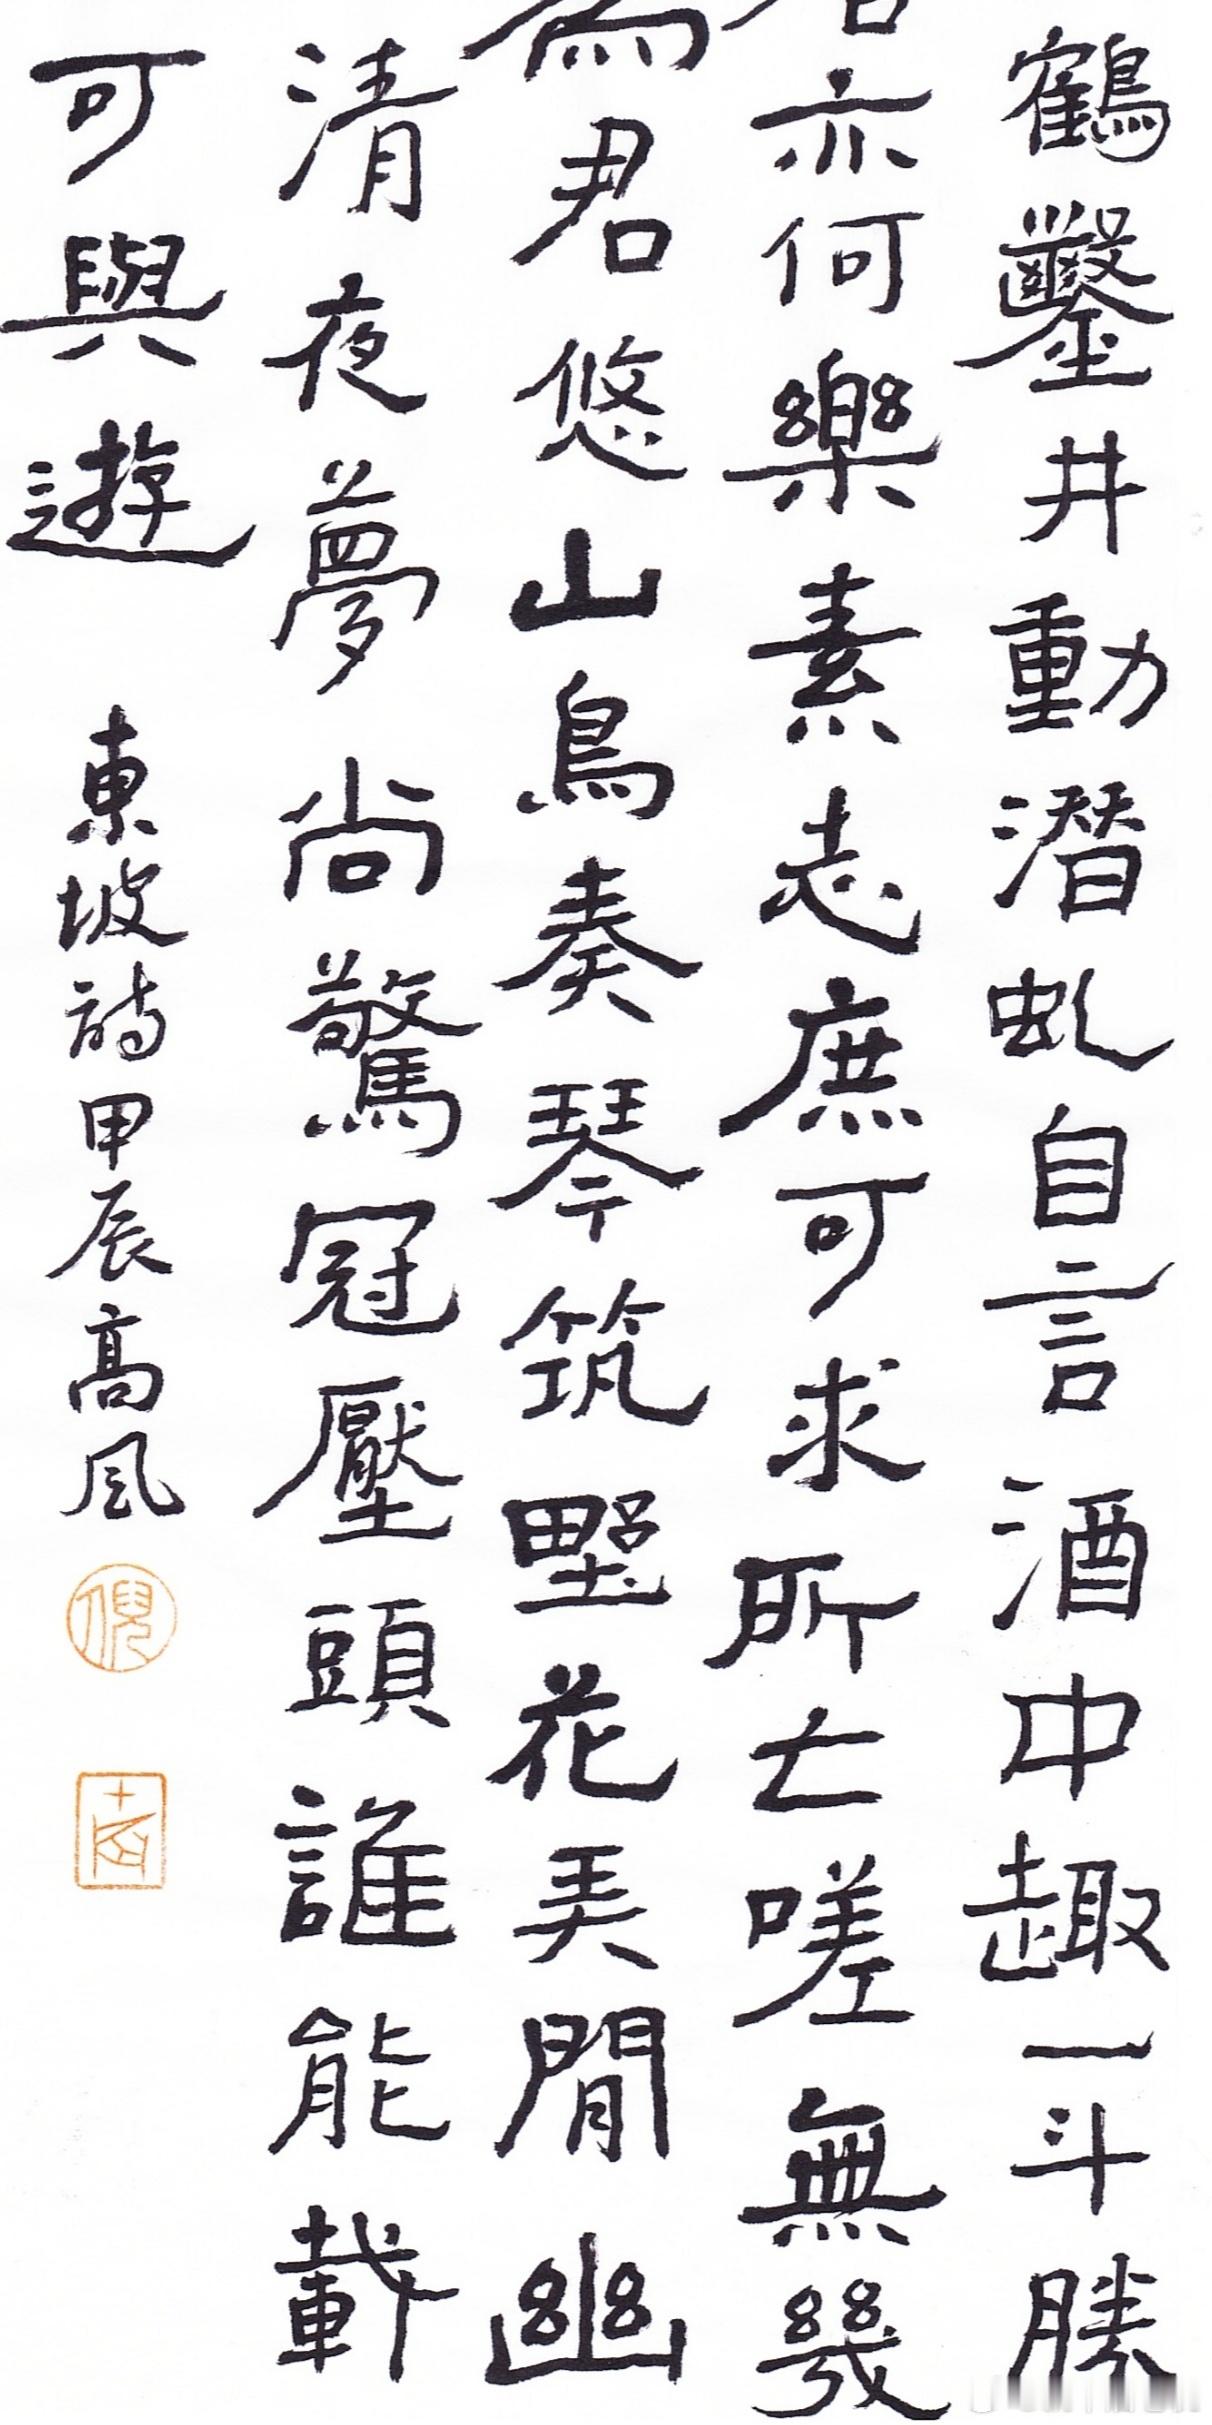 鶴鑿井動潛虬自言酒中趣一斗勝
亦何樂素志庶可求所亡嗟無幾
為君悠山鳥奏琴筑野花弄閒幽
清夜夢尚驚冠壓頭誰能載
可與遊
東坡詩甲辰高風
倪